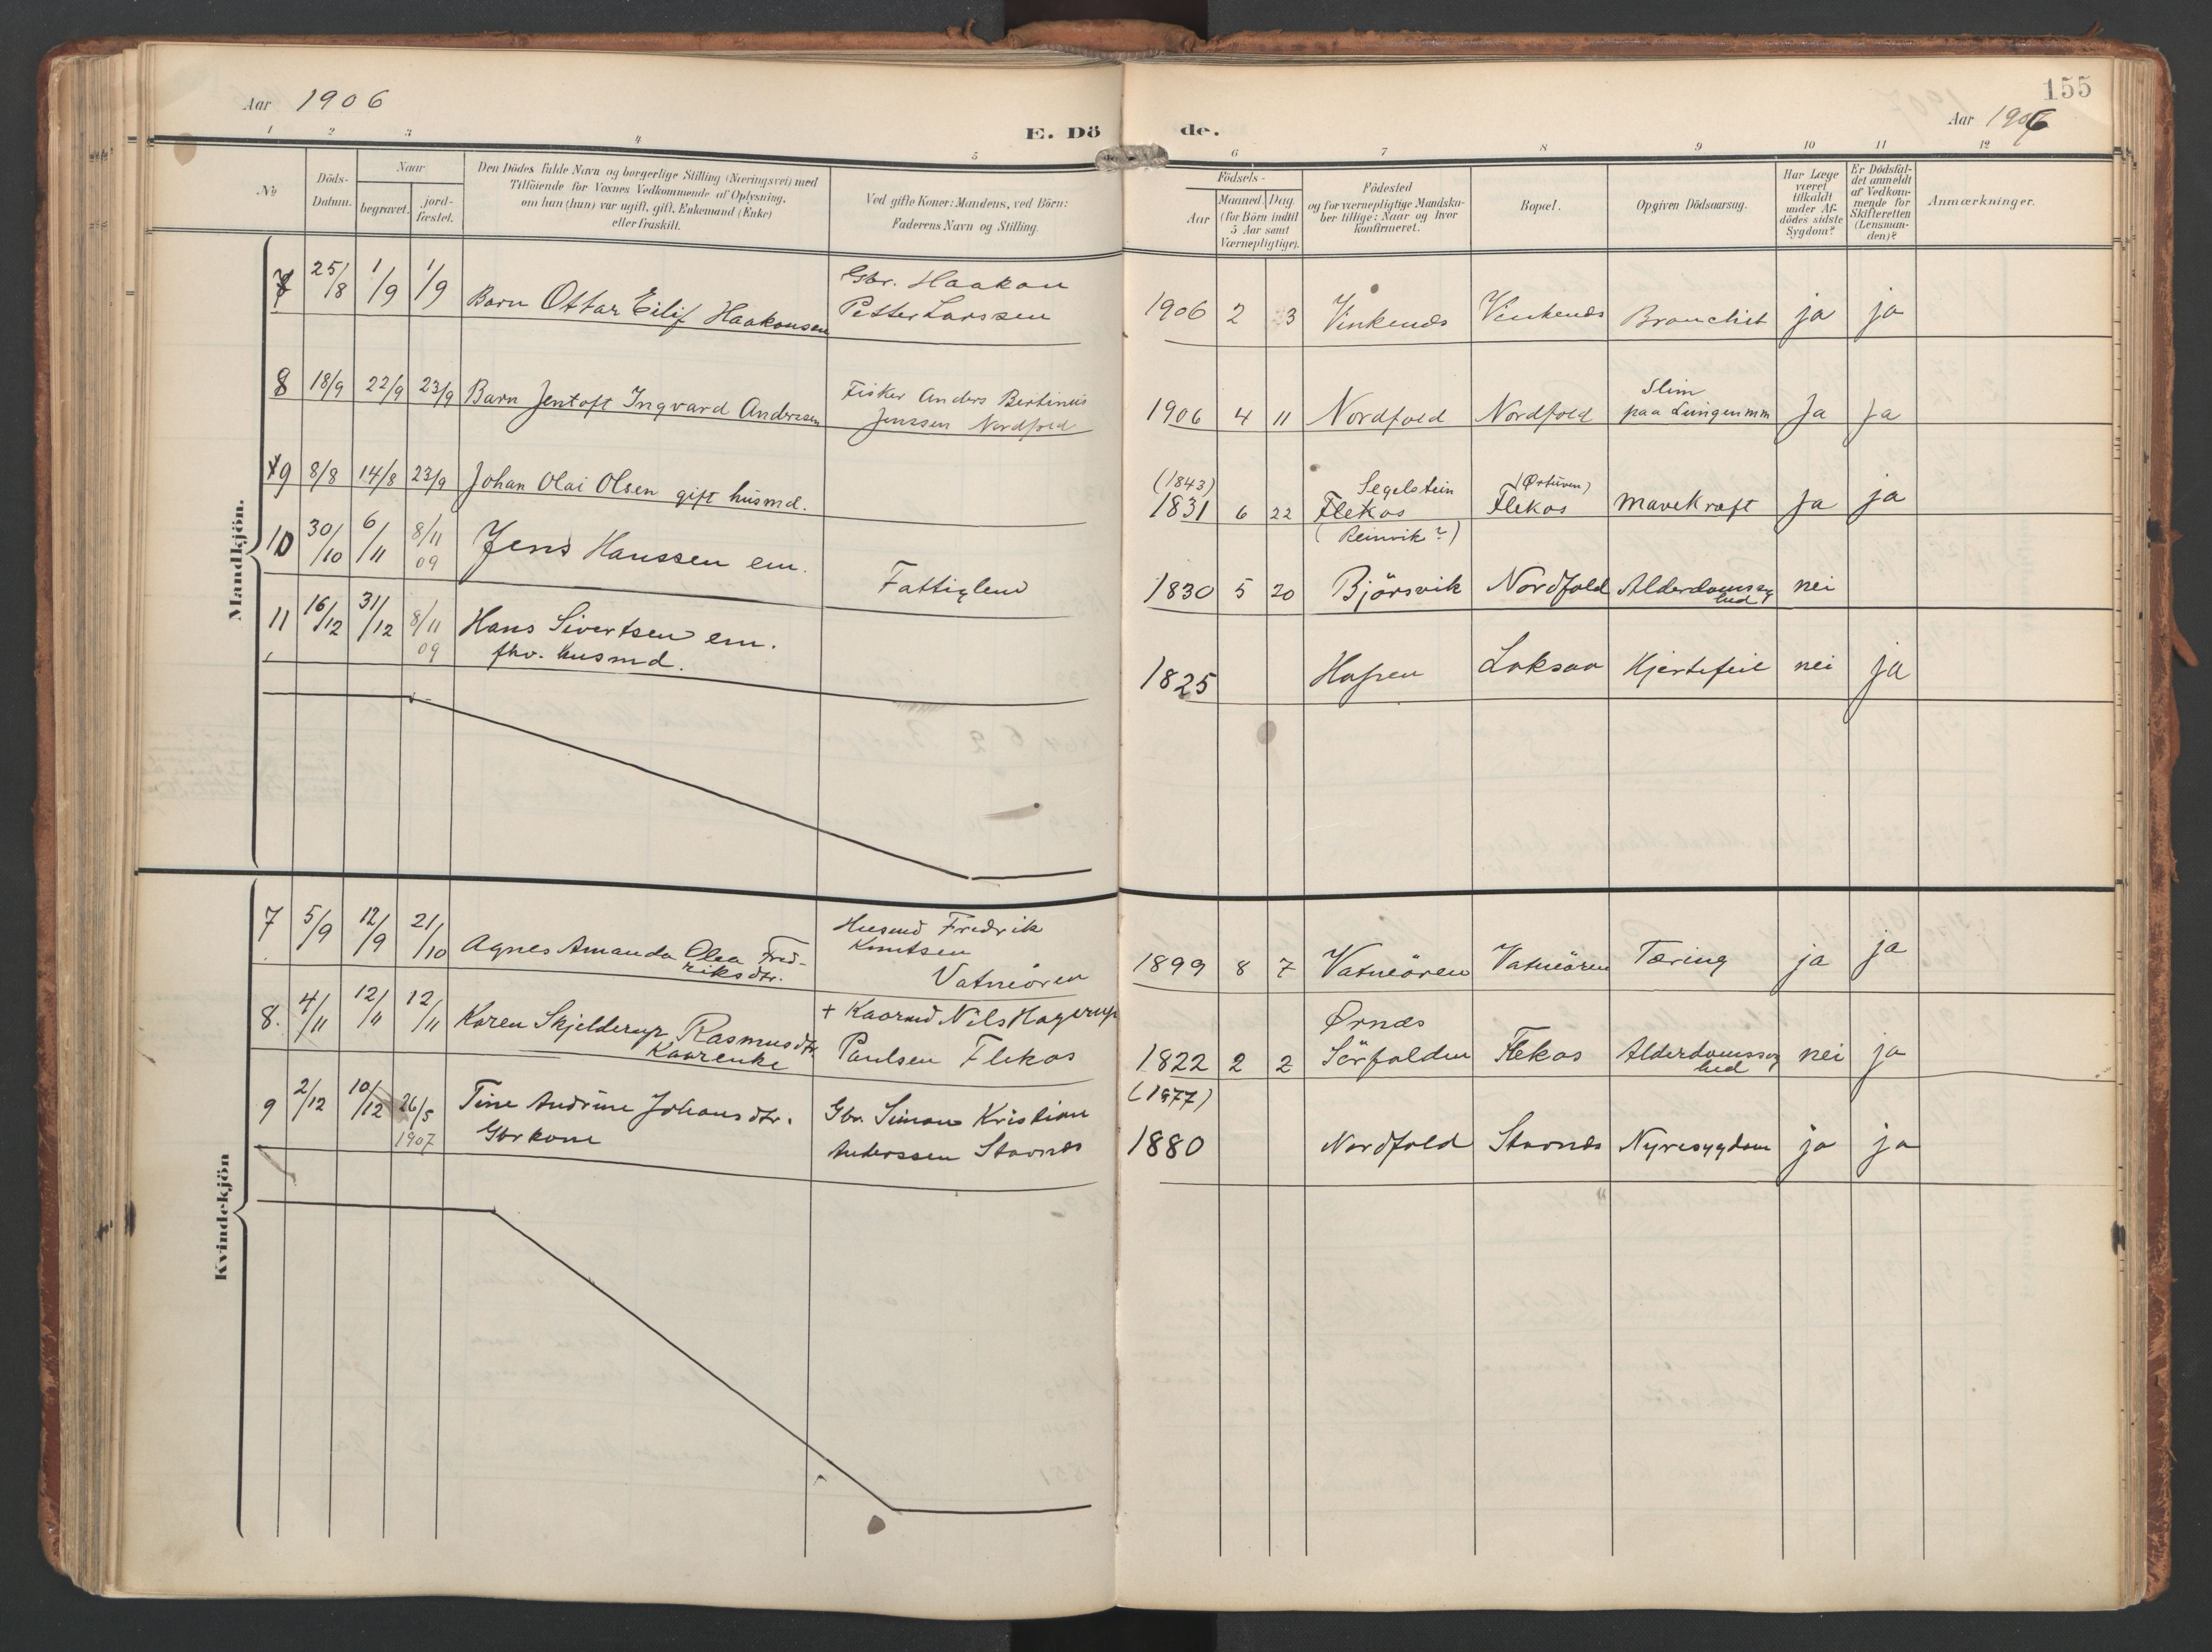 155
Aar 1906
Aar 1906
E. Dö
de.
1 2 3 4 5 6 7 8 9 10 11 12
No
Döds-
Datum.
Naar
begravet.
jord-
fæstet.
Den Dödes fulde Navn og borgerlige Stilling (Næringsvei) med
Tilföiende for Voxnes Vedkommende af Oplysning,
om han (hun) var ugift, gift, Enkemand (Enke)
eller fraskilt.
Ved gifte Koner: Mandens, ved Börn:
Faderens Navn og Stilling.
Födsels-
Aar
Maaned. Dag.
(for Börn indtil
5 Aar samt
Værnepligtige).
Födested
og for værnepligtige Mandska-
ber tillige: Naar og hvor
konfirmeret.
Bopæl.
Opgiven Dödsaarsag.
Har Læge
været
tilkaldt
under Af-
dödes sidste
Sygdom?
Er Dödsfal-
det anmeldt
af Vedkom-
mende for
Skifteretten
(Lensman-
den)?
Anmærkninger.
Mandkjön.
7 25/8 1/9 1/9 Barn Ottar Eilif Haakonsen
Gbr. Haakon
Petter Larssen
1906 2 3 Vinkenes Vinkenes Bronchit ja ja
8 18/9 22/9 23/9 Barn Jentoft Ingvard Anderssen
Fisker Anders Bertinius
Jenssen Nordfold
1906 4 11 Nordfold Nordfold
Slim
paa Lungerne
Ja Ja
9 8/8 14/8 23/9 Johan Olai Olsen gift husmd.
(1843)
1831 6 22
Segelstein
Flekos
(Reinvik?)
Flekos Mavekræft Ja ja
10 30/10 6/11 8/11
09
Jens Hanssen em.
Fattiglem
1830 5 20 Björsvik Nordfold Alderdomssvag
hed
nei
11 16/12 31/12 8/11
09
Hans Sivertsen em.
fhv. husmd.
1825 Laksaa Hjertefeil nei ja
Kvindekjön
7 5/9 12/9 21/10 Agnes Amanda Olea Fred-
riksdtr.
Husmd Fredrik
Knutsen
Vatneören
1899 8 7 Vatneören Vatneören Tæring ja ja
8. 4/11 12/11 12/11 Karen Skjelderup Rasmusdtr
Kaarenke
+ Kaarmd Nils Hagerup
Paulsen Flekos
1822 2 2
Ørnes
Sörfolden
Flekos Alderdomssvag
hed
nei ja
9 2/12 10/12 26/5
1907
Tine Andrine Johansdtr.
Gbrkone
Gbr. Simon Kristian
Anderssen Stavnes
(1877)
1880 Nordfold Stavnes Nyresygdom ja ja